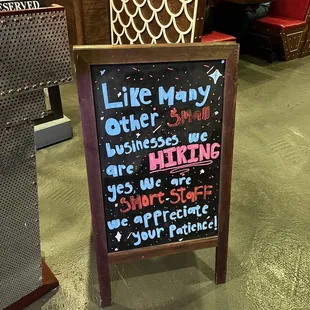 RESERVED
Like Many
Other Small
businesses we
are HIRING
yes, we are
SHort-Staff
we appreciate
your Patience!